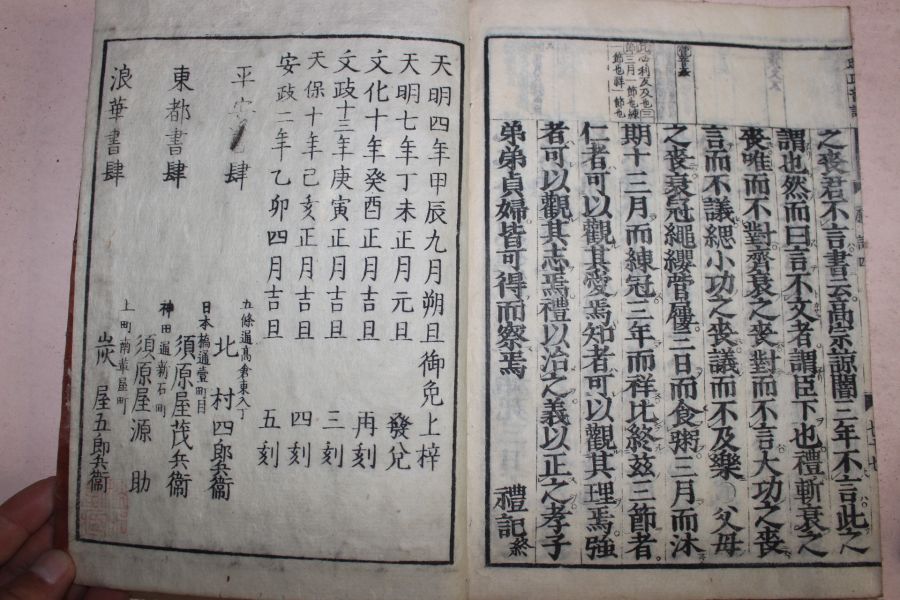 之喪君不言書云高宗諒闇三年不言此之
謂也然而曰言不文者謂臣下也禮斬衰之
喪唯而不對齊衰之喪對而不言大功之喪
言而不議緦小功之喪議而不及樂○父母
之喪衰冠繩纓菅屨三日而食粥三月而沐
期十三月而練冠三年而祥比終茲三節者
仁者可以觀其愛焉知者可以觀其理焉強
者可以觀其志焉禮以治之義以正之孝子
弟弟貞婦皆可得而察焉
禮記終
天明四年甲辰九月朔旦御免上梓
天明七年丁未正月元旦 發兌
文化十年癸酉正月吉旦 再刻
文政十三年庚寅正月吉旦 三刻
天保十年己亥正月吉旦 四刻
安政二年乙卯四月吉旦 五刻
平安 肆
五條通高倉東入丁
北村四郎兵衞
東都書肆
日本橋通壹町目
須原屋茂兵衞
神田通新石町
須原屋源助
浪華書肆
上町南革屋町
炭屋五郎兵衞